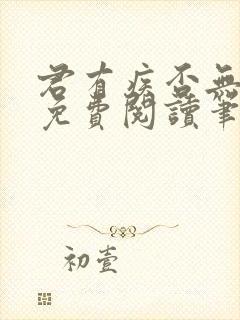 君有疾否無
免費閱讀筆
初壹